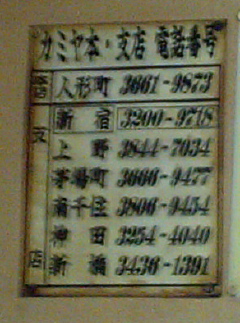 カミヤ本・支店 電話番号
本店 人形町 3661-9873
支店
新宿 3200-9718
上野 3844-7034
茅場町 3666-9477
南千住 3806-9454
神田 3254-4040
新橋 3436-1391